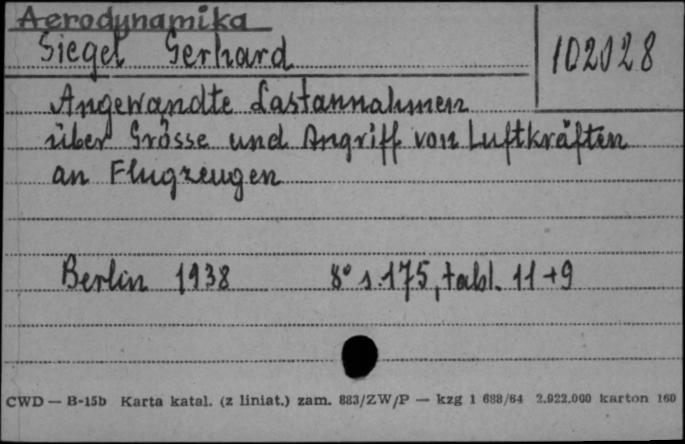 Aerodynamika
Siegel Gerhard
102028
Angewandte Lastannahmen
über Grösse und Angriff von Luftkräften
an Flugzeugen
Berlin 1938 8° s. 175, tabl. 11+9
CWD — B-15b Karta katal. (z liniat.) zam. 883/ZW/P — kzg 1 688/64 2.922.000 karton 160